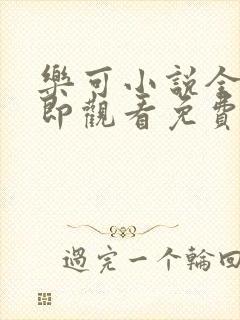 樂可小説全
即觀看免費
過完一个輪回